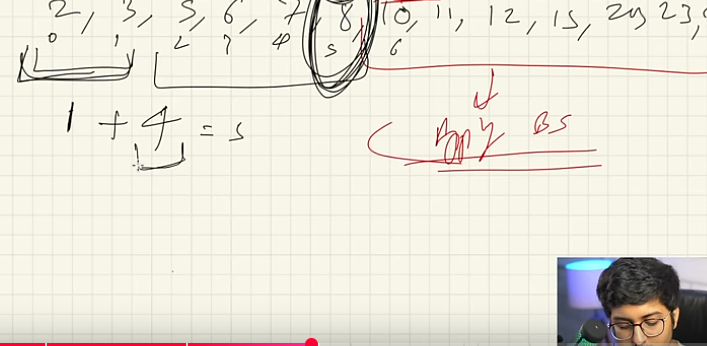 2, 3, 5, 6, 7, 8, 10, 11, 12, 15, 20, 23,
0 1 2 3 4 5 6
1 + 4 = 5
Apply BS